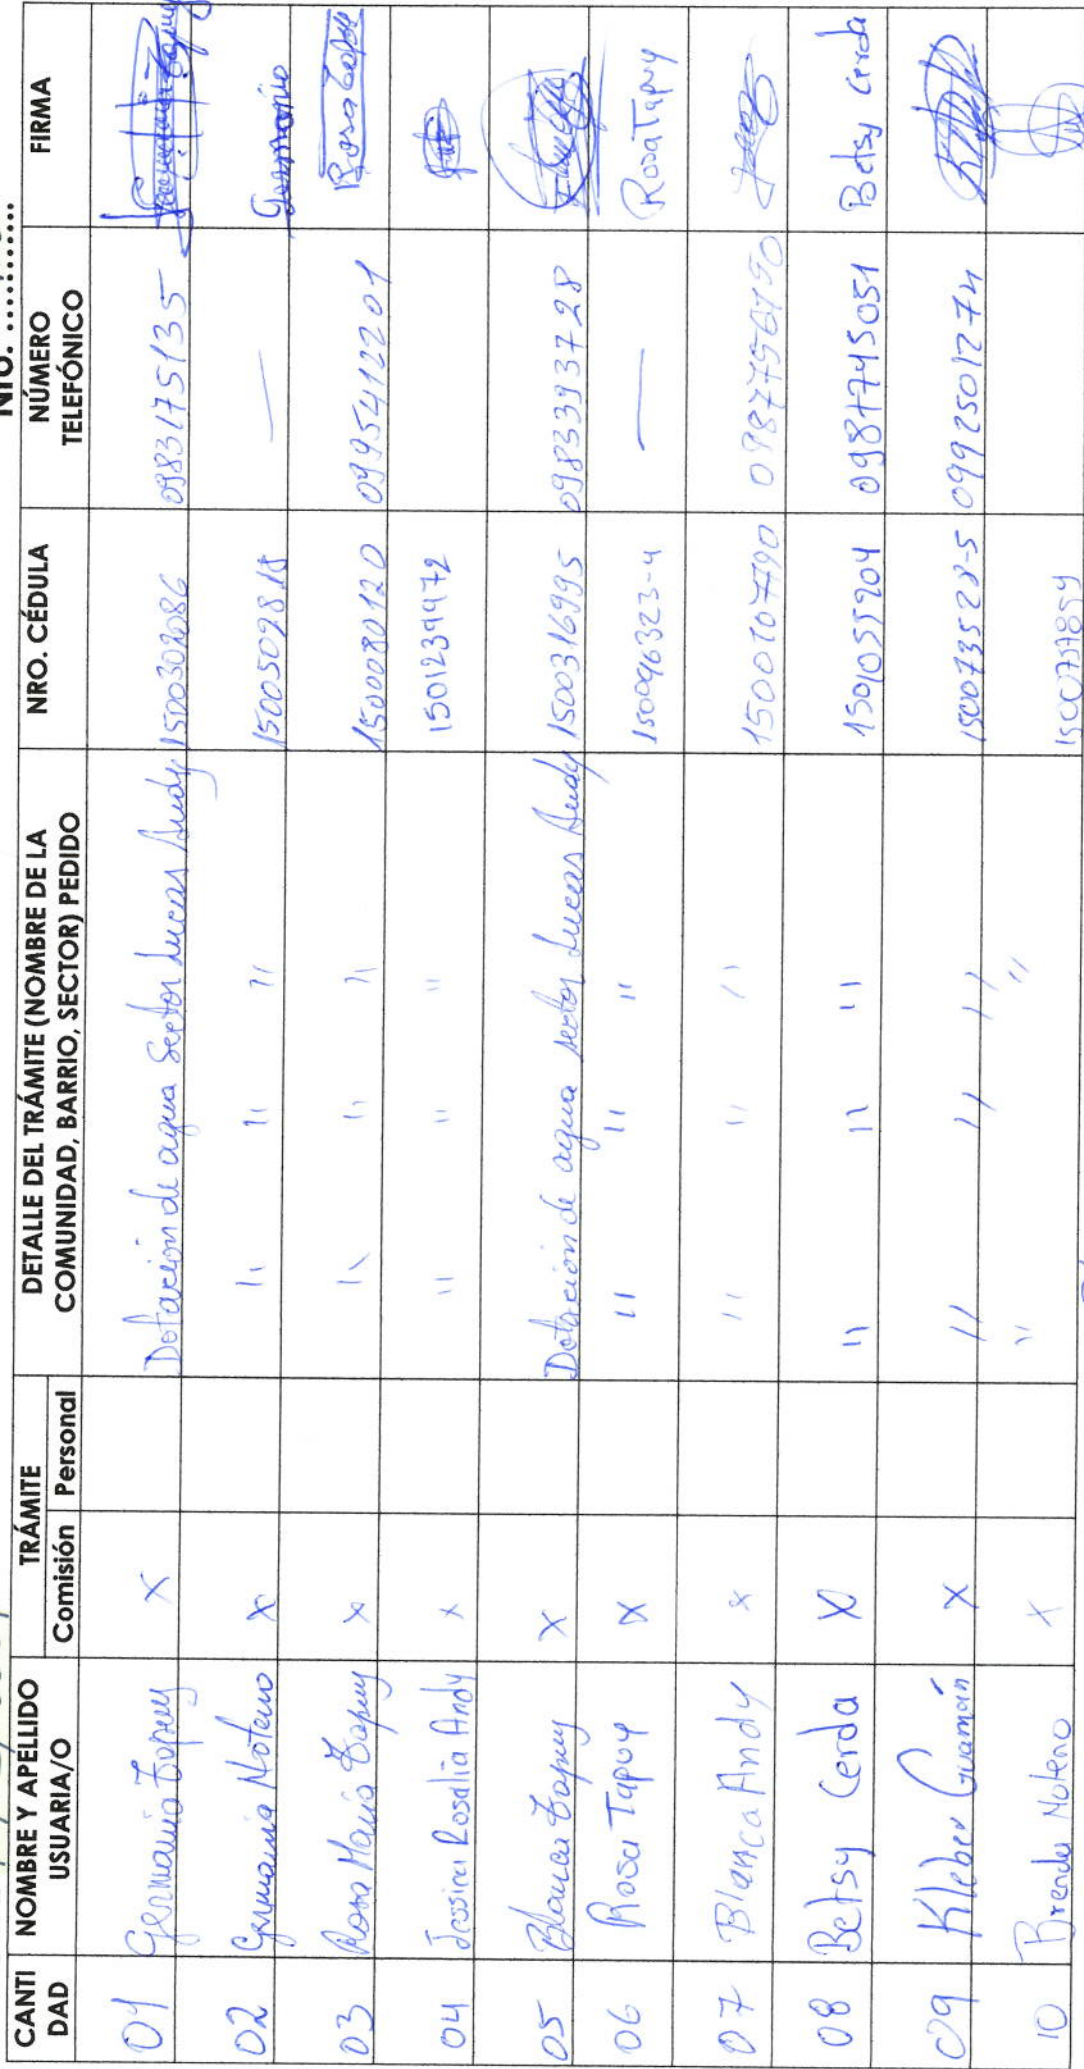 Nro. ..........
CANTI DAD | NOMBRE Y APELLIDO USUARIA/O | TRÁMITE Comisión Personal | DETALLE DEL TRÁMITE (NOMBRE DE LA COMUNIDAD, BARRIO, SECTOR) PEDIDO | NRO. CÉDULA | NÚMERO TELEFÓNICO | FIRMA
01 Germania Tapuy X Dotación de agua Sector Lucas Andy 0983175135
02 Germania Noteno X " " " —
03 Rosa María Tapuy X " " " 1500080120 0995412201 Rosa Tapuy
04 Jessica Rosalia Andy X " " " 1501239472
05 Blanca Tapuy X Dotación de agua sector Lucas Andy 1500316995 0983393728
06 Rosa Tapuy X " " " 150096323-4 — Rosa Tapuy
07 Blanca Andy X " " "
08 Betsy Cerda X " " " 1501055204 0981745051 Betsy Cerda
09 Kleber Guamán X " " " 150073528-5 0992501274
10 Brenda Noteno X " " 1500737854